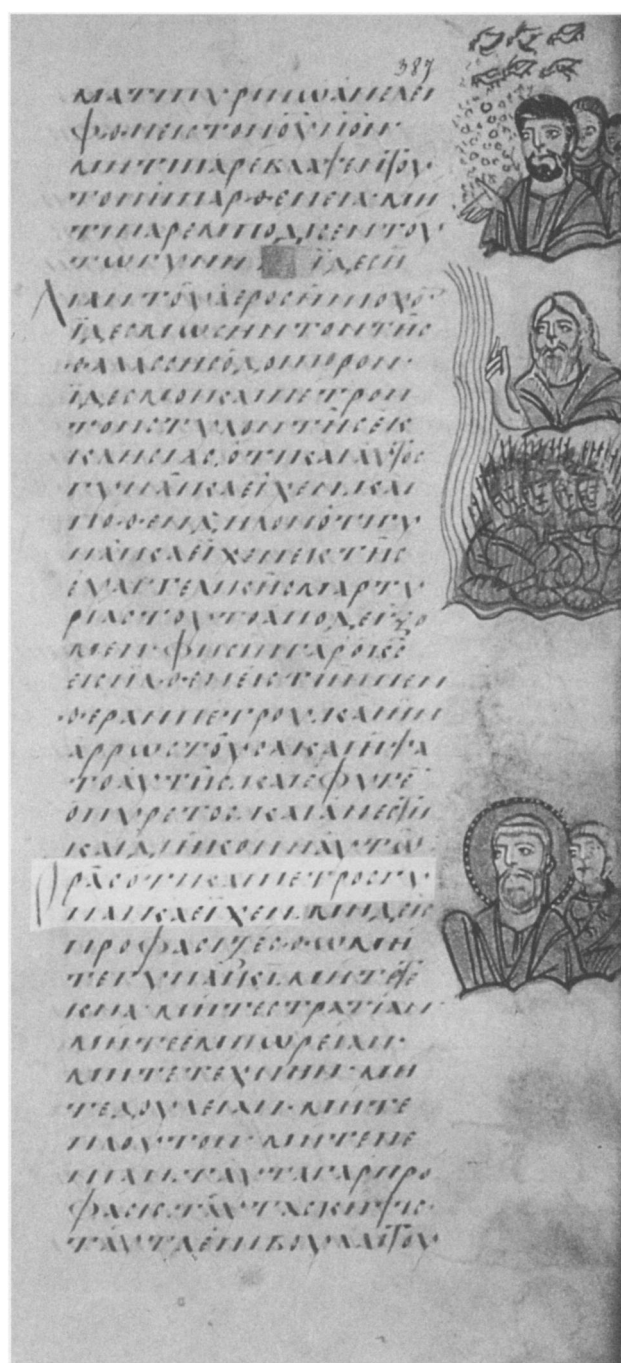 387
ΜΑΤΙ ΠΥΡΙΝΩ ΑΝΕΛΕΙ
ΦΘΗ ΕΙΣ ΤΟΝ ΟΥΝΟΝ
ΜΗ ΤΙ ΠΑΡΕΒΛΑΨΕΝ ΤΟΥ
ΤΟΝ Η ΠΑΡΘΕΝΕΙΑ ΜΗ
ΤΙ ΠΑΡΕΜΠΟΔΙΣΕΝ ΤΟΥ
ΤΩ ΓΥΝΗ ΙΔΕΣ Η
ΛΙΑΝ ΤΟΝ ΑΕΡΟΣ ΗΝΙΟΧΟ
ΙΔΕΣ ΜΩΣΗΝ ΤΟΝ ΤΗΣ
ΘΑΛΑΣΣΗΣ ΟΔΟΙΠΟΡΟΝ·
ΙΔΕΣ ΜΟΙ ΚΑΙ ΠΕΤΡΟΝ
ΤΟΝ ΣΤΥΛΟΝ ΤΗΣ ΕΚ
ΚΛΗΣΙΑΣ· ΟΤΙ ΚΑΙ ΑΥΤΟΣ
ΓΥΝΑΙΚΑ ΕΙΧΕΝ· ΚΑΙ
ΠΟΘΕΝ ΔΗΛΟΝ ΟΤΙ ΓΥ
ΝΑΙΚΑ ΕΙΧΕΝ ΕΚ ΤΗΣ
ΕΥΑΓΓΕΛΙΚΗΣ ΜΑΡΤΥ
ΡΙΑΣ ΤΟΥΤΟ ΑΠΟΔΕΙΞΟ
ΜΕΝ· ΦΗΣΙΝ ΓΑΡ Ο ΙΣ
ΕΙΣΗΛΘΕΝ ΕΙΣ ΤΗΝ ΠΕΝ
ΘΕΡΑΝ ΠΕΤΡΟΥ· ΚΑΙ ΗΝ
ΑΡΡΩΣΤΟΥΣΑ ΚΑΙ ΗΨΑ
ΤΟ ΑΥΤΗΣ· ΚΑΙ ΕΦΥΓΕ
Ο ΠΥΡΕΤΟΣ· ΚΑΙ ΑΝΕΣΤΗ
ΚΑΙ ΔΙΗΚΟΝΗ ΑΥΤΩ
ΟΡΑΣ ΟΤΙ ΚΑΙ ΠΕΤΡΟΣ ΓΥ
ΝΑΙΚΑ ΕΙΧΕΝ· ΜΗΔΕΙΣ
ΠΡΟΦΑΣΙΖΕΣΘΩ ΜΗ
ΤΕ ΓΥΝΑΙΚΑ· ΜΗΤΕ ΤΕ
ΚΝΑ· ΜΗΤΕ ΣΤΡΑΤΙΑΝ·
ΜΗΤΕ ΕΜΠΩΡΕΙΑΝ·
ΜΗΤΕ ΤΕΧΝΗΝ· ΜΗ
ΤΕ ΔΟΥΛΕΙΑΝ· ΜΗΤΕ
ΠΛΟΥΤΟΝ· ΜΗΤΕ ΠΕ
ΝΙΑΝ· ΤΑΥΤΑ ΓΑΡ ΠΡΟ
ΦΑΣΙΣ· ΤΑΥΤΑ ΣΚΗΨΙΣ·
ΤΑΥΤΑ ΕΠΙΒΟΥΛΑΙ ΤΟΥ